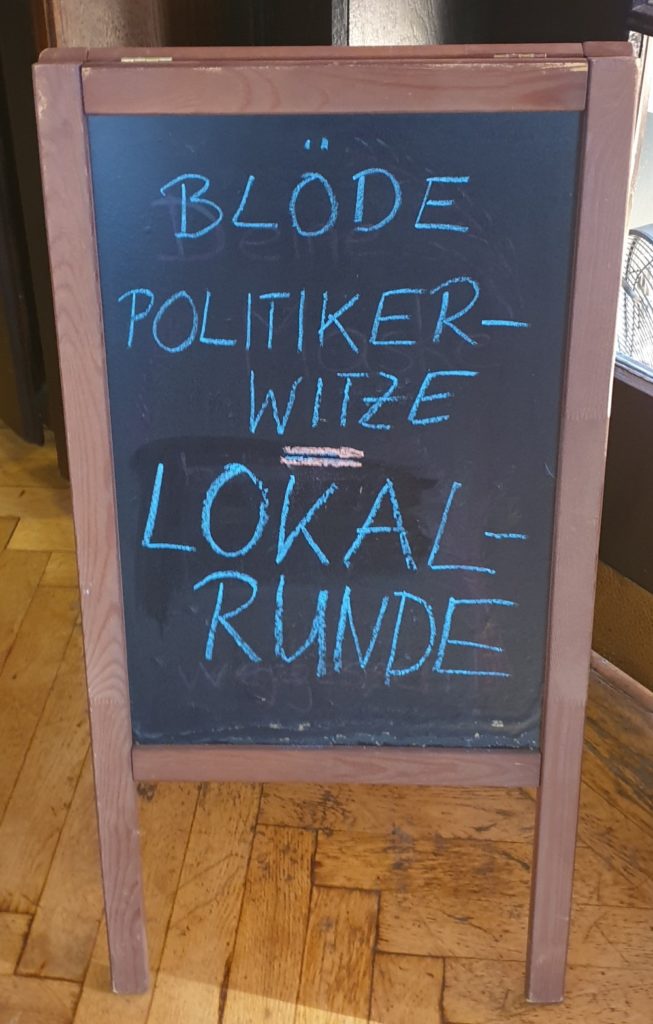 BLÖDE
POLITIKER-
WITZE
=
LOKAL-
RUNDE